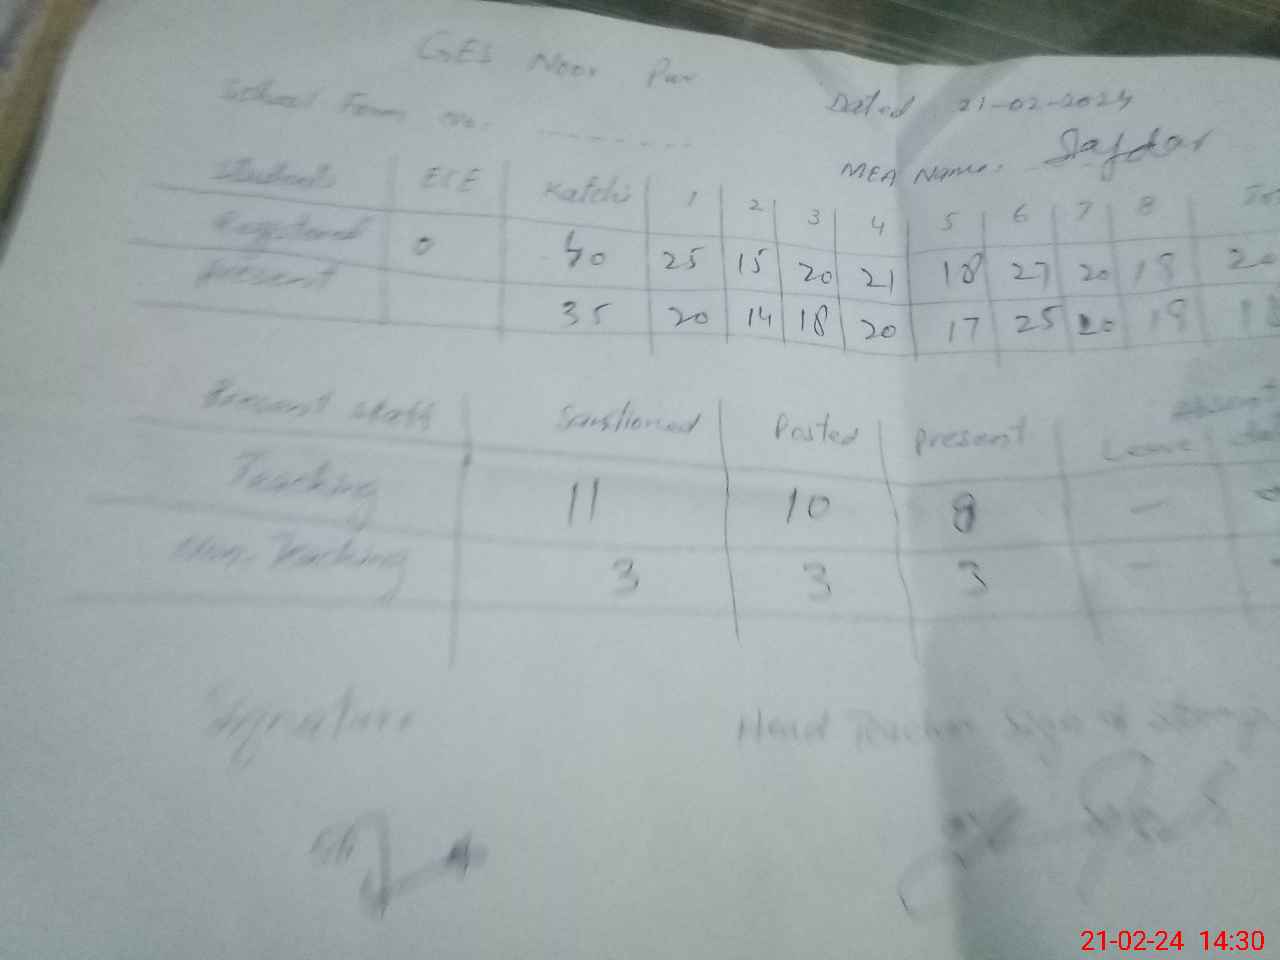 GES Noor Pur
School Form no. ..........
Dated 21-02-2024
MEA Name. Safdar
Students ECE Katchi 1 2 3 4 5 6 7 8
Registered 0 40 25 15 20 21 18 27 20 19
Present 35 20 14 18 20 17 25 20 19
staff Sanctioned Posted present Leave
Teaching 11 10 8 -
Non. Teaching 3 3 3 -
Signature
Head Teacher Sign &
21-02-24 14:30